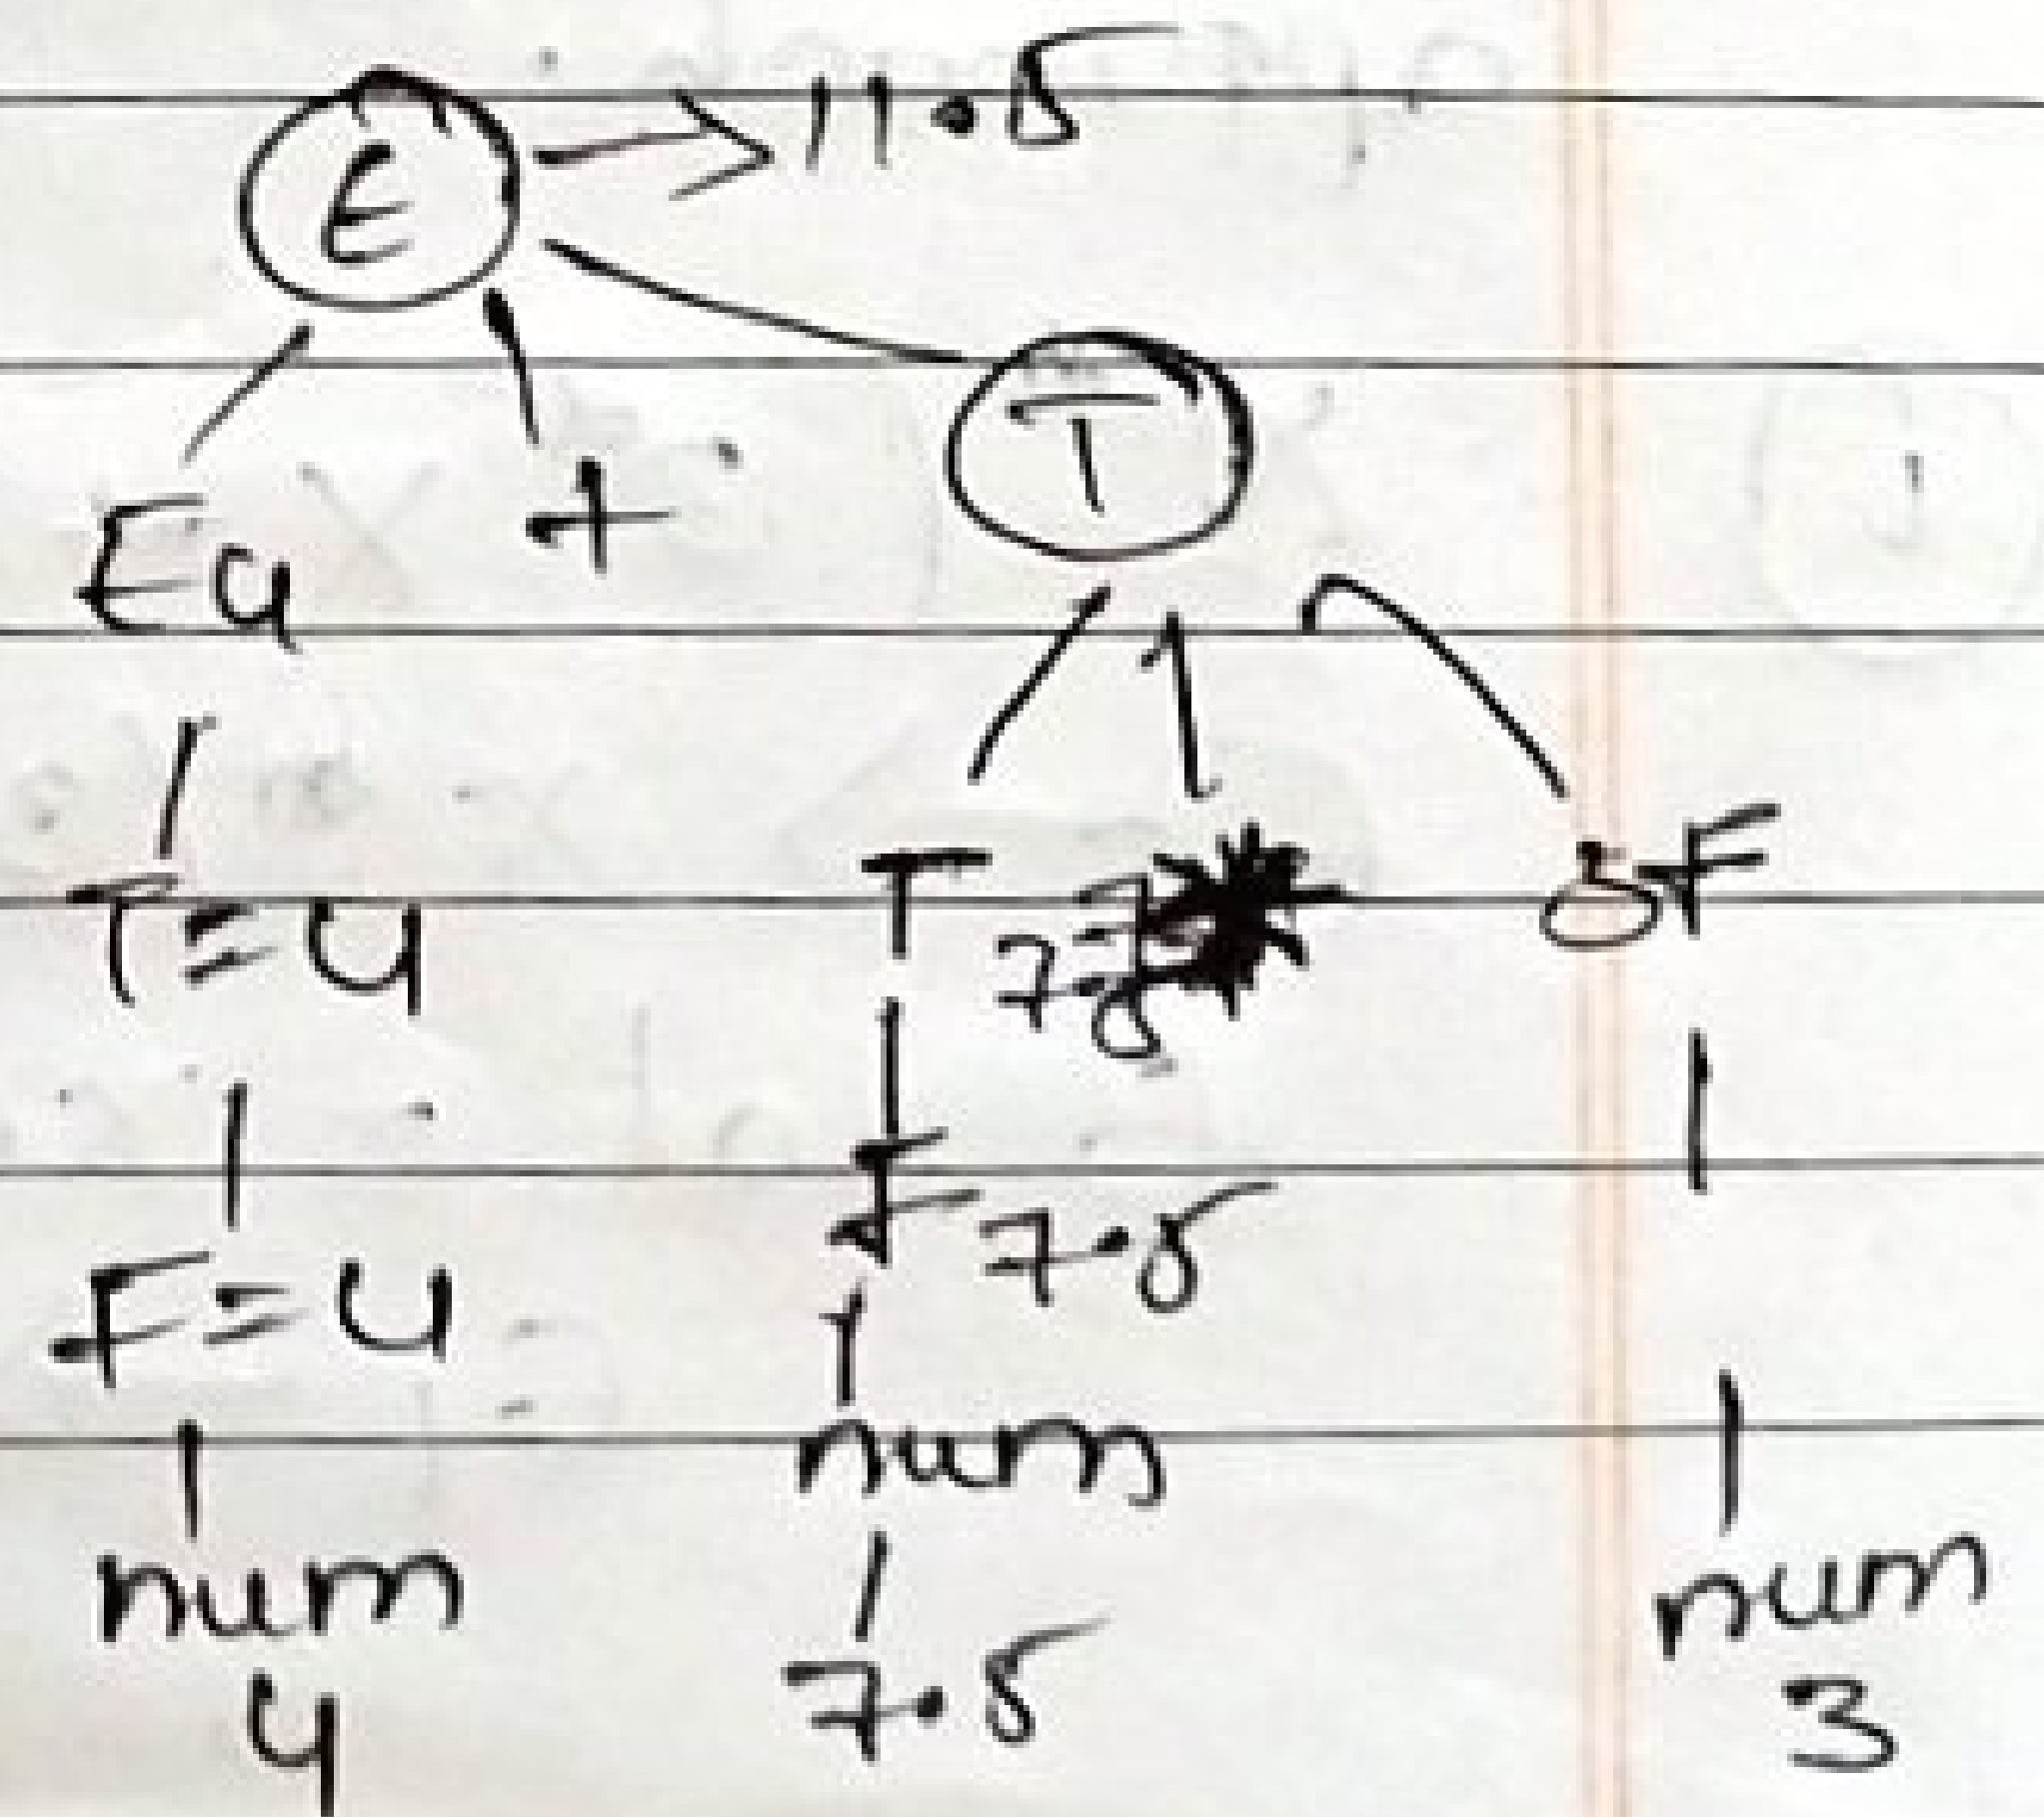 E → 11.8
E4 + T
T=4 T 7.8 F
F=4 F 7.8
num num num
4 7.8 3